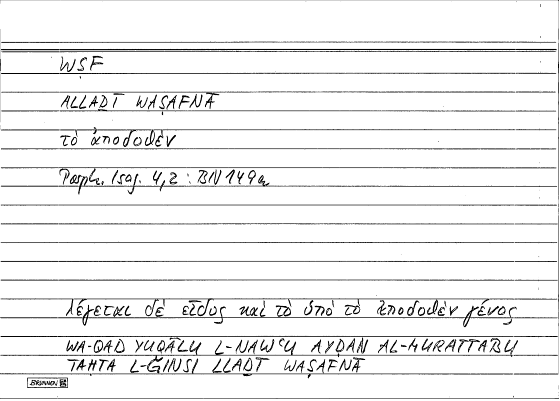 WṢF
ALLAḎĪ WAṢAFNĀ
τὸ ἀποδοθέν
Porph. Isag. 4,2 : BN 149a
λέγεται δὲ εἶδος καὶ τὸ ὑπὸ τὸ ἀποδοθὲν γένος
WA-QAD YUQĀLU L-NAWʿU AYḌAN AL-MURATTABU
TAḤTA L-ǦINSI LLAḎĪ WAṢAFNĀ
BRUNNEN